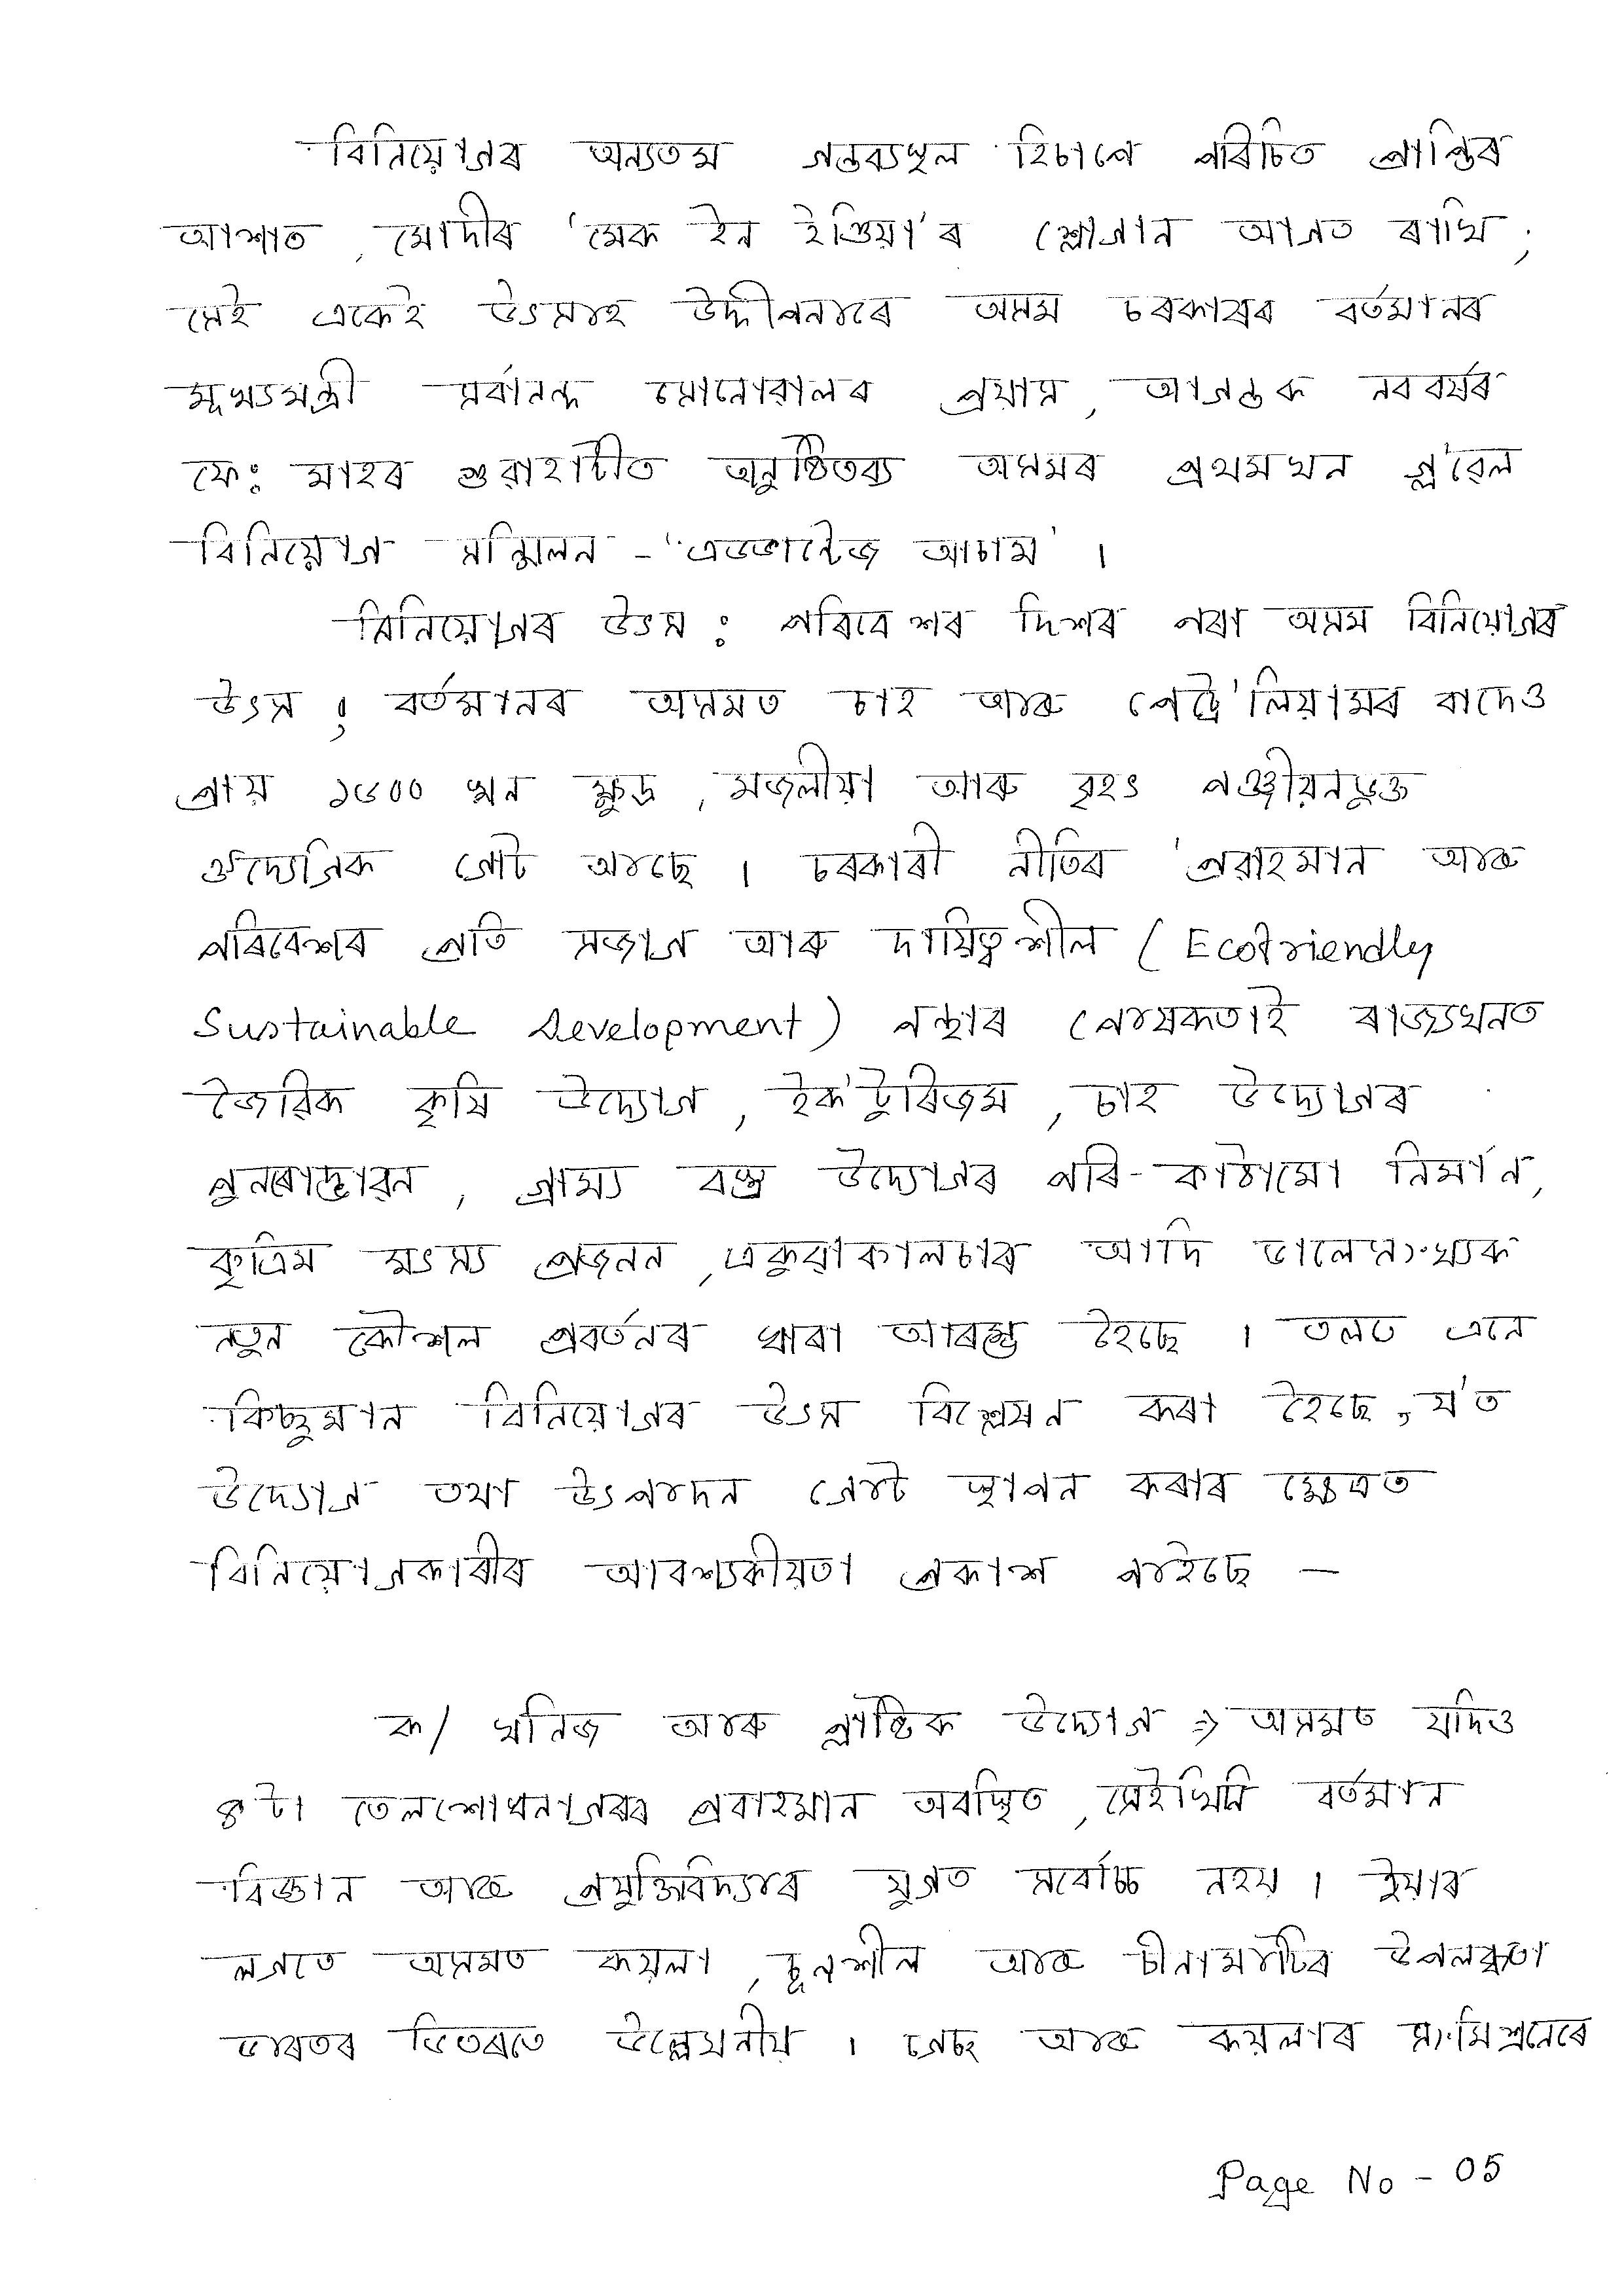 বিনিয়োগৰ অন্যতম গন্তব্যস্থল হিচাপে পৰিচিত প্ৰাপ্তিৰ
আশাত , মোদীৰ 'মেক ইন ইণ্ডিয়া'ৰ শ্লোগান আগত ৰাখি ;
সেই একেই উৎসাহ উদ্দীপনাৰে অসম চৰকাৰৰ বৰ্তমানৰ
মূখ্যমন্ত্ৰী সৰ্বানন্দ সোনোৱালৰ প্ৰয়াস , আগন্তুক নববৰ্ষৰ
ফে: মাহৰ গুৱাহাটীত অনুষ্ঠিতব্য অসমৰ প্ৰথমখন গ্ল'বেল
বিনিয়োগ সন্মিলন - 'এডভান্টেজ আচাম' ।
বিনিয়োগৰ উৎস : পৰিবেশৰ দিশৰ পৰা অসম বিনিয়োগৰ
উৎস ; বৰ্তমানৰ অসমত চাহ আৰু পেট্ৰ'লিয়ামৰ বাদেও
প্ৰায় ১৬০০ খন ক্ষুদ্ৰ , মজলীয়া আৰু বৃহৎ পঞ্জীয়নভুক্ত
ঔদ্যোগিক গোট আছে । চৰকাৰী নীতিৰ প্ৰবাহমান আৰু
পৰিবেশৰ প্ৰতি সজাগ আৰু দায়িত্বশীল ( Ecofriendly
Sustainable Development ) পন্থাৰ পোষকতাই ৰাজ্যখনত
জৈৱিক কৃষি উদ্যোগ , ইক'টুৰিজম , চাহ উদ্যোগৰ
পুনৰোদ্ধাৱন , গ্ৰাম্য বস্ত্ৰ উদ্যোগৰ পৰি-কাঠামো নিৰ্মান ,
কৃত্ৰিম মৎস্য প্ৰজনন , একুৱাকালচাৰ আদি ভালেসংখ্যক
নতুন কৌশল প্ৰবৰ্তনৰ ধাৰা আৰম্ভ হৈছে । তলত এনে
কিছুমান বিনিয়োগৰ উৎস বিশ্লেষন কৰা হৈছে , য'ত
উদ্যোগ তথা উৎপাদন গোট স্থাপন কৰাৰ ক্ষেত্ৰত
বিনিয়োগকাৰীৰ আবশ্যকীয়তা প্ৰকাশ পাইছে —
ক/ খনিজ আৰু প্লাষ্টিক উদ্যোগ ⇒ অসমত যদিও
৪টা তেলশোধনাগাৰৰ প্ৰবাহমান অবস্থিত , সেইখিনি বৰ্তমান
বিজ্ঞান আৰু প্ৰযুক্তিবিদ্যাৰ যুগত সৰ্বোচ্চ নহয় । ইয়াৰ
লগতে অসমত কয়লা , চূনশীল আৰু চীনামাটিৰ উপলব্ধতা
ভাৰতৰ ভিতৰতে উল্লেখনীয় । গেছ আৰু কয়লাৰ সংমিশ্ৰনেৰে
Page No - 05